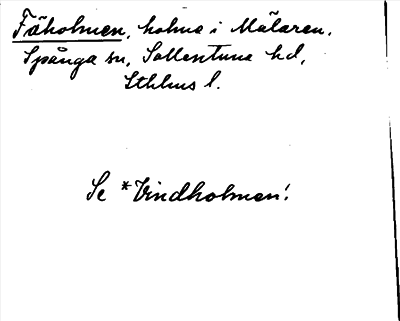 Fäholmen, holme i Mälaren.
Spånga sn, Sollentuna hd,
Sthlms l.
Se *Vindholmen!